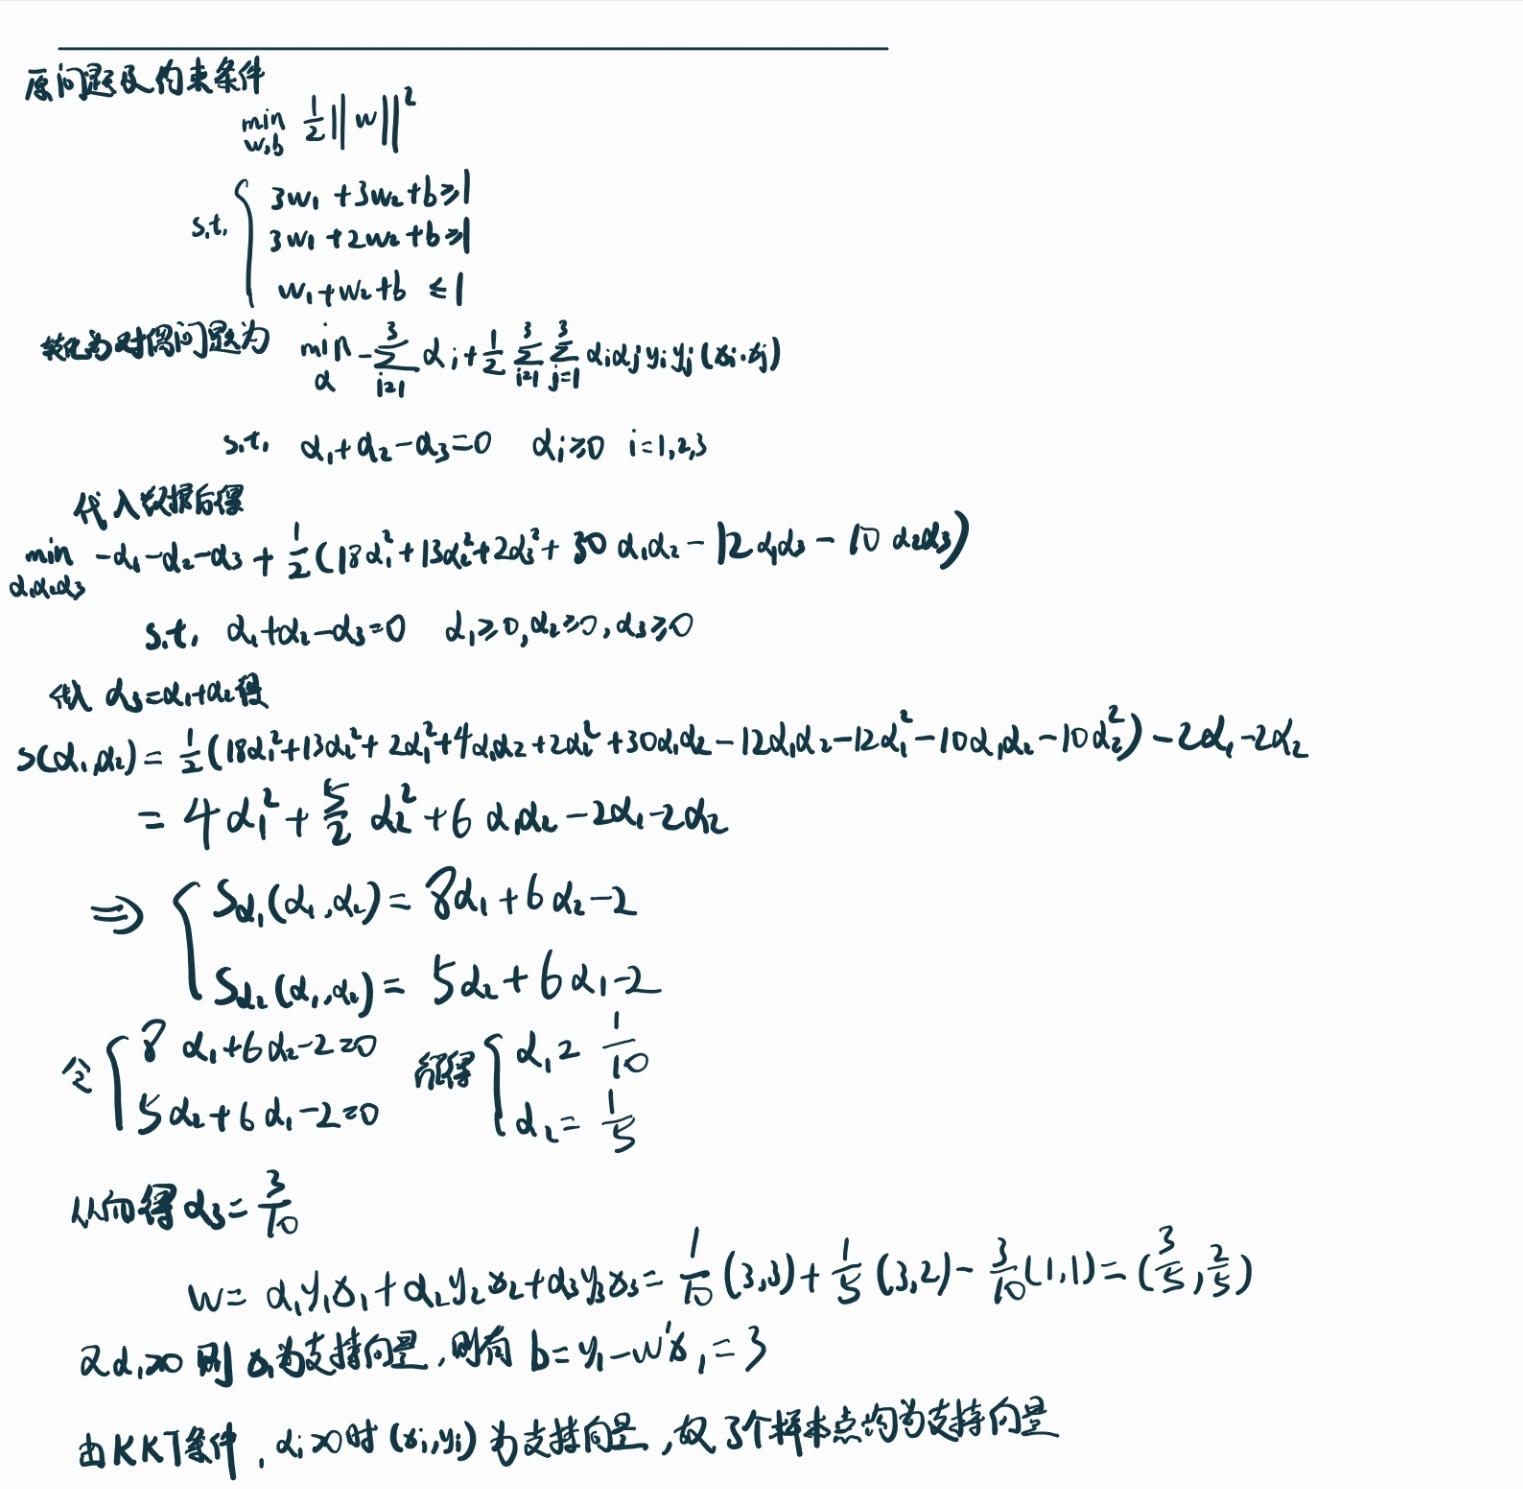 原问题及约束条件
min w,b 1/2 ||w||²
s.t. { 3w₁+3w₂+b≥1
3w₁+2w₂+b≥1
w₁+w₂+b ≤1
转化为对偶问题为 min α -∑_{i=1}^{3} αi + 1/2 ∑_{i=1}^{3} ∑_{j=1}^{3} αiαjyiyj(xi·xj)
s.t. α₁+α₂-α₃=0 αi≥0 i=1,2,3
代入数据后得
min α₁α₂α₃ -α₁-α₂-α₃ + 1/2(18α₁²+13α₂²+2α₃²+30α₁α₂-12α₁α₃-10α₂α₃)
s.t. α₁+α₂-α₃=0 α₁≥0,α₂≥0,α₃≥0
代入 α₃=α₁+α₂得
s(α₁,α₂)= 1/2(18α₁²+13α₂²+2α₁²+4α₁α₂+2α₂²+30α₁α₂-12α₁α₂-12α₁²-10α₁α₂-10α₂²)-2α₁-2α₂
= 4α₁²+5/2 α₂²+6α₁α₂-2α₁-2α₂
⇒ { Sα₁(α₁,α₂)= 8α₁+6α₂-2
Sα₂(α₁,α₂)= 5α₂+6α₁-2
令 { 8α₁+6α₂-2=0 解得 { α₁= 1/10
5α₂+6α₁-2=0 α₂= 1/5
从而得 α₃= 3/10
w= α₁y₁x₁+α₂y₂x₂+α₃y₃x₃= 1/10(3,3)+1/5(3,2)-3/10(1,1)=(3/5,2/5)
又α₁>0 则 x₁为支持向量,则有 b=y₁-w'x₁=3
由KKT条件,αi>0时(xi,yi)为支持向量,故3个样本点均为支持向量